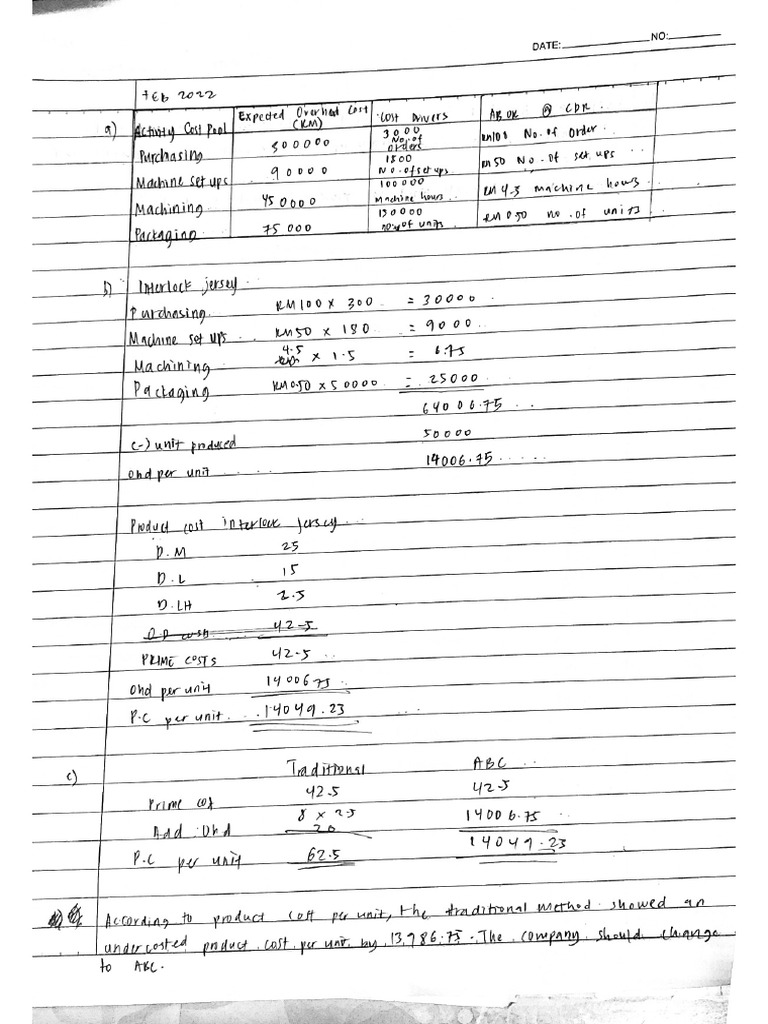 DATE: NO:
Feb 2022
a) Activity Cost Pool Expected Overhead Cost (RM) Cost Drivers ABOR @ CDR
Purchasing 300000 3000 No. of orders RM100 No. of Order
Machine set ups 90000 1800 No. of set ups RM50 No. of set. ups
Machining 450000 100000 machine hours RM4.5 machine hours
Packaging 75000 150000 no. of units RM0.50 no. of units
b) Interlock jersey
Purchasing RM100 x 300 = 30000
Machine set ups RM50 x 180 = 9000
Machining 4.5 x 1.5 = 6.75
Packaging RM0.50 x 50000 = 25000
64006.75
(-) unit produced 50000
Ohd per unit 14006.75
Product cost interlock jersey
D.M 25
D.L 15
D.LH 2.5
42.5
PRIME COSTS 42.5
Ohd per unit 14006.75
P.C per unit 14049.23
c) Traditional ABC
Prime cos 42.5 42.5
8 x 2.5
Add Ohd 20 14006.75
P.C per unit 62.5 14049.23
According to product cost per unit, the traditional method showed an
undercosted product cost per unit by 13,986.75. The company should change
to ABC.